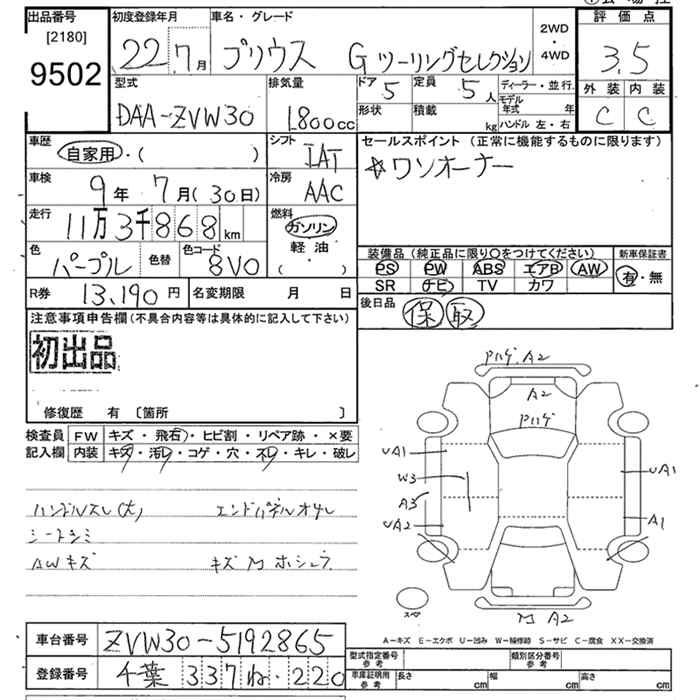 出品番号 [2180] 9502
初度登録年月 22年7月
車名・グレード プリウス G ツーリングセレクション
2WD・4WD
評価点 3.5
外装 C 内装 C
型式 DAA-ZVW30
排気量 1,800cc
ドア 5 定員 5人
形状 積載 kg
ディーラー・並行
モデル年式 年
ハンドル 左・右
車歴 自家用・( )
シフト IAT
セールスポイント (正常に機能するものに限ります)
☆ワンオーナー
車検 9年7月(30日)
冷房 AAC
走行 11万3千868km
燃料 ガソリン 軽油 ( ・ )
色 パープル 色替 色コード 8V0
装備品 (純正品に限り○をつけてください) 新車保証書
PS PW ABS エアB AW 有・無
SR ナビ TV カワ
R券 13,190円 名変期限 月 日
後日品 保 取
注意事項申告欄 (不具合内容等は具体的に記入して下さい)
初出品
修復歴 有 〔箇所 〕
検査員 FW キズ・飛石・ヒビ割・リペア跡・×要
記入欄 内装 キズ・汚レ・コゲ・穴・スレ・キレ・破レ
ハンドルスレ(大)
シートシミ
AWキズ
キズ M ホシュウ
Pハゲ A2
A2
Pハゲ
UA1
W3
A3
UA2
UA1
A1
スペア
M A2
A-キズ E-エクボ U-凹み W-補修跡 S-サビ C-腐食 XX-交換済
車台番号 ZVW30-5192865
登録番号 千葉 337 ね・220
型式指定番号 参考 類別区分番号 参考
車庫証明用 参考 長さ cm 幅 cm 高さ cm